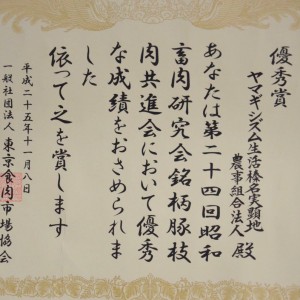 優秀賞
ヤマギシズム生活榛名実顕地
農事組合法人 殿
あなたは第二十四回昭和
畜肉研究会銘柄豚枝
肉共進会において優秀
な成績をおさめられま
した
依って之を賞します
平成二十五年十一月八日
一般社団法人 東京食肉市場協会